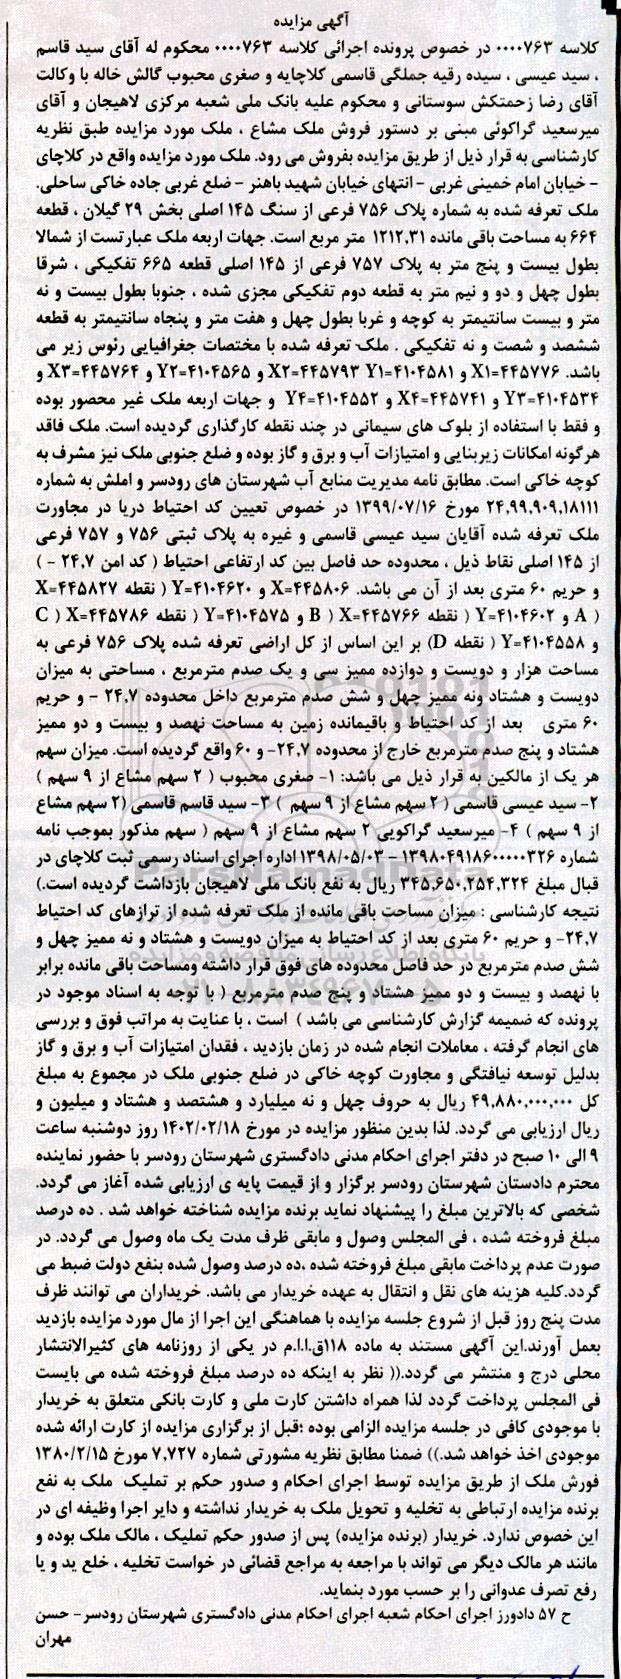 آگهی مزایده
کلاسه ۰۰۰۰۷۶۳ در خصوص پرونده اجرائی کلاسه ۰۰۰۰۷۶۳ محکوم له آقای سید قاسم
، سید عیسی ، سیده رقیه جملگی قاسمی کلاچایه و صغری محبوب گالش خاله با وکالت
آقای رضا زحمتکش سوستانی و محکوم علیه بانک ملی شعبه مرکزی لاهیجان و آقای
میرسعید گراکوئی مبنی بر دستور فروش ملک مشاع ، ملک مورد مزایده طبق نظریه
کارشناسی به قرار ذیل از طریق مزایده بفروش می رود. ملک مورد مزایده واقع در کلاچای
- خیابان امام خمینی غربی - انتهای خیابان شهید باهنر - ضلع غربی جاده خاکی ساحلی.
ملک تعرفه شده به شماره پلاک ۷۵۶ فرعی از سنگ ۱۴۵ اصلی بخش ۲۹ گیلان ، قطعه
۶۶۴ به مساحت باقی مانده ۱۲۱۲,۳۱ متر مربع است. جهات اربعه ملک عبارتست از شمالا
بطول بیست و پنج متر به پلاک ۷۵۷ فرعی از ۱۴۵ اصلی قطعه ۶۶۵ تفکیکی ، شرقا
بطول چهل و دو و نیم متر به قطعه دوم تفکیکی مجزی شده ، جنوبا بطول بیست و نه
متر و بیست سانتیمتر به کوچه و غربا بطول چهل و هفت متر و پنجاه سانتیمتر به قطعه
ششصد و شصت و نه تفکیکی . ملک تعرفه شده با مختصات جغرافیایی رئوس زیر می
باشد. X۱=۴۴۵۷۷۶ و Y۱=۴۱۰۴۵۸۱ X۲=۴۴۵۷۹۳ و Y۲=۴۱۰۴۵۶۵ و X۳=۴۴۵۷۶۴ و
Y۳=۴۱۰۴۵۳۴ و X۴=۴۴۵۷۴۱ و Y۴=۴۱۰۴۵۵۲ و جهات اربعه ملک غیر محصور بوده
و فقط با استفاده از بلوک های سیمانی در چند نقطه کارگذاری گردیده است. ملک فاقد
هرگونه امکانات زیربنایی و امتیازات آب و برق و گاز بوده و ضلع جنوبی ملک نیز مشرف به
کوچه خاکی است. مطابق نامه مدیریت منابع آب شهرستان های رودسر و املش به شماره
۲۴,۹۹,۹۰۹,۱۸۱۱۱ مورخ ۱۳۹۹/۰۷/۱۶ در خصوص تعیین کد احتیاط دریا در مجاورت
ملک تعرفه شده آقایان سید عیسی قاسمی و غیره به پلاک ثبتی ۷۵۶ و ۷۵۷ فرعی
از ۱۴۵ اصلی نقاط ذیل ، محدوده حد فاصل بین کد ارتفاعی احتیاط ( کد امن ۲۴,۷ - )
و حریم ۶۰ متری بعد از آن می باشد. X=۴۴۵۸۰۶ و Y=۴۱۰۴۶۲۰ ( نقطه X=۴۴۵۸۲۷
( A و Y=۴۱۰۴۶۰۲ ( نقطه B ) X=۴۴۵۷۶۶ و Y=۴۱۰۴۵۷۵ ( نقطه C ) X=۴۴۵۷۸۶
و Y=۴۱۰۴۵۵۸ ( نقطه D) بر این اساس از کل اراضی تعرفه شده پلاک ۷۵۶ فرعی به
مساحت هزار و دویست و دوازده ممیز سی و یک صدم مترمربع ، مساحتی به میزان
دویست و هشتاد ونه ممیز چهل و شش صدم مترمربع داخل محدوده ۲۴,۷ - و حریم
۶۰ متری بعد از کد احتیاط و باقیمانده زمین به مساحت نهصد و بیست و دو ممیز
هشتاد و پنج صدم مترمربع خارج از محدوده ۲۴,۷- و ۶۰ واقع گردیده است. میزان سهم
هر یک از مالکین به قرار ذیل می باشد: ۱- صغری محبوب ( ۲ سهم مشاع از ۹ سهم )
۲- سید عیسی قاسمی ( ۲ سهم مشاع از ۹ سهم ) ۳- سید قاسم قاسمی (۲ سهم مشاع
از ۹ سهم ) ۴- میرسعید گراکویی ۲ سهم مشاع از ۹ سهم ( سهم مذکور بموجب نامه
شماره ۱۳۹۸۰۴۹۱۸۶۰۰۰۰۰۳۲۶ - ۱۳۹۸/۰۵/۰۳ اداره اجرای اسناد رسمی ثبت کلاچای در
قبال مبلغ ۳۴۵,۶۵۰,۲۵۴,۳۲۴ ریال به نفع بانک ملی لاهیجان بازداشت گردیده است.)
نتیجه کارشناسی : میزان مساحت باقی مانده از ملک تعرفه شده از ترازهای کد احتیاط
۲۴,۷- و حریم ۶۰ متری بعد از کد احتیاط به میزان دویست و هشتاد و نه ممیز چهل و
شش صدم مترمربع در حد فاصل محدوده های فوق قرار داشته ومساحت باقی مانده برابر
با نهصد و بیست و دو ممیز هشتاد و پنج صدم مترمربع ( با توجه به اسناد موجود در
پرونده که ضمیمه گزارش کارشناسی می باشد ) است ، با عنایت به مراتب فوق و بررسی
های انجام گرفته ، معاملات انجام شده در زمان بازدید ، فقدان امتیازات آب و برق و گاز
بدلیل توسعه نیافتگی و مجاورت کوچه خاکی در ضلع جنوبی ملک در مجموع به مبلغ
کل ۴۹,۸۸۰,۰۰۰,۰۰۰ ریال به حروف چهل و نه میلیارد و هشتصد و هشتاد و میلیون و
ریال ارزیابی می گردد. لذا بدین منظور مزایده در مورخ ۱۴۰۲/۰۲/۱۸ روز دوشنبه ساعت
۹ الی ۱۰ صبح در دفتر اجرای احکام مدنی دادگستری شهرستان رودسر با حضور نماینده
محترم دادستان شهرستان رودسر برگزار و از قیمت پایه ی ارزیابی شده آغاز می گردد.
شخصی که بالاترین مبلغ را پیشنهاد نماید برنده مزایده شناخته خواهد شد . ده درصد
مبلغ فروخته شده ، فی المجلس وصول و مابقی ظرف مدت یک ماه وصول می گردد. در
صورت عدم پرداخت مابقی مبلغ فروخته شده ،ده درصد وصول شده بنفع دولت ضبط می
گردد.کلیه هزینه های نقل و انتقال به عهده خریدار می باشد. خریداران می توانند ظرف
مدت پنج روز قبل از شروع جلسه مزایده با هماهنگی این اجرا از مال مورد مزایده بازدید
بعمل آورند.این آگهی مستند به ماده ۱۱۸ق.ا.ا.م در یکی از روزنامه های کثیرالانتشار
محلی درج و منتشر می گردد.(( نظر به اینکه ده درصد مبلغ فروخته شده می بایست
فی المجلس پرداخت گردد لذا همراه داشتن کارت ملی و کارت بانکی متعلق به خریدار
با موجودی کافی در جلسه مزایده الزامی بوده ؛قبل از برگزاری مزایده از کارت ارائه شده
موجودی اخذ خواهد شد.)) ضمنا مطابق نظریه مشورتی شماره ۷,۷۲۷ مورخ ۱۳۸۰/۲/۱۵
فورش ملک از طریق مزایده توسط اجرای احکام و صدور حکم بر تملیک ملک به نفع
برنده مزایده ارتباطی به تخلیه و تحویل ملک به خریدار نداشته و دایر اجرا وظیفه ای در
این خصوص ندارد. خریدار (برنده مزایده) پس از صدور حکم تملیک ، مالک ملک بوده و
مانند هر مالک دیگر می تواند با مراجعه به مراجع قضائی در خواست تخلیه ، خلع ید و یا
رفع تصرف عدوانی را بر حسب مورد بنماید.
ح ۵۷ دادورز اجرای احکام شعبه اجرای احکام مدنی دادگستری شهرستان رودسر- حسن
مهران